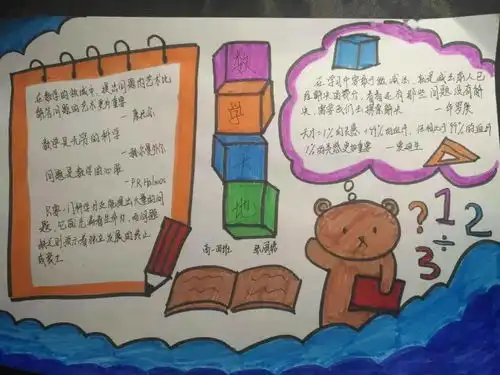 在数学的领域中,提出问题的艺术比
解答问题的艺术更为重要
— 康托尔
数学是无穷的科学
—赫尔曼外尔
问题是数学的心脏
—P.R.Halmos
只要一门科学分支能提出大量的问
题,它就充满着生命力,而问题
缺乏则预示着独立发展的终止
或衰亡
数
学
天
地
高一
在学习中要敢于做减法,就是减去前人已
经解决的部分,看看还有那些问题没有解
决,需要我们去探索解决 —华罗庚
天才=1%的灵感+99%的血汗,
1%的灵感更加重要 —爱迪生
?
1
2
÷
3